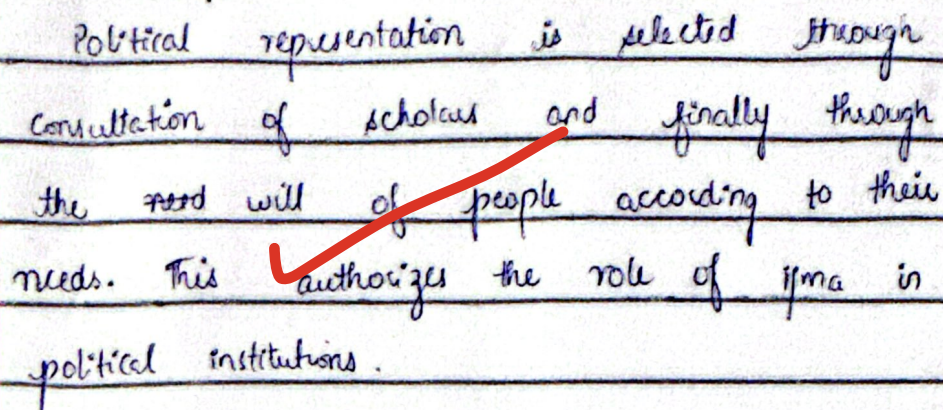 Political representation is selected through
consultation of scholars and finally through
the need will of people according to their
needs. This authorizes the role of ijma in
political institutions.